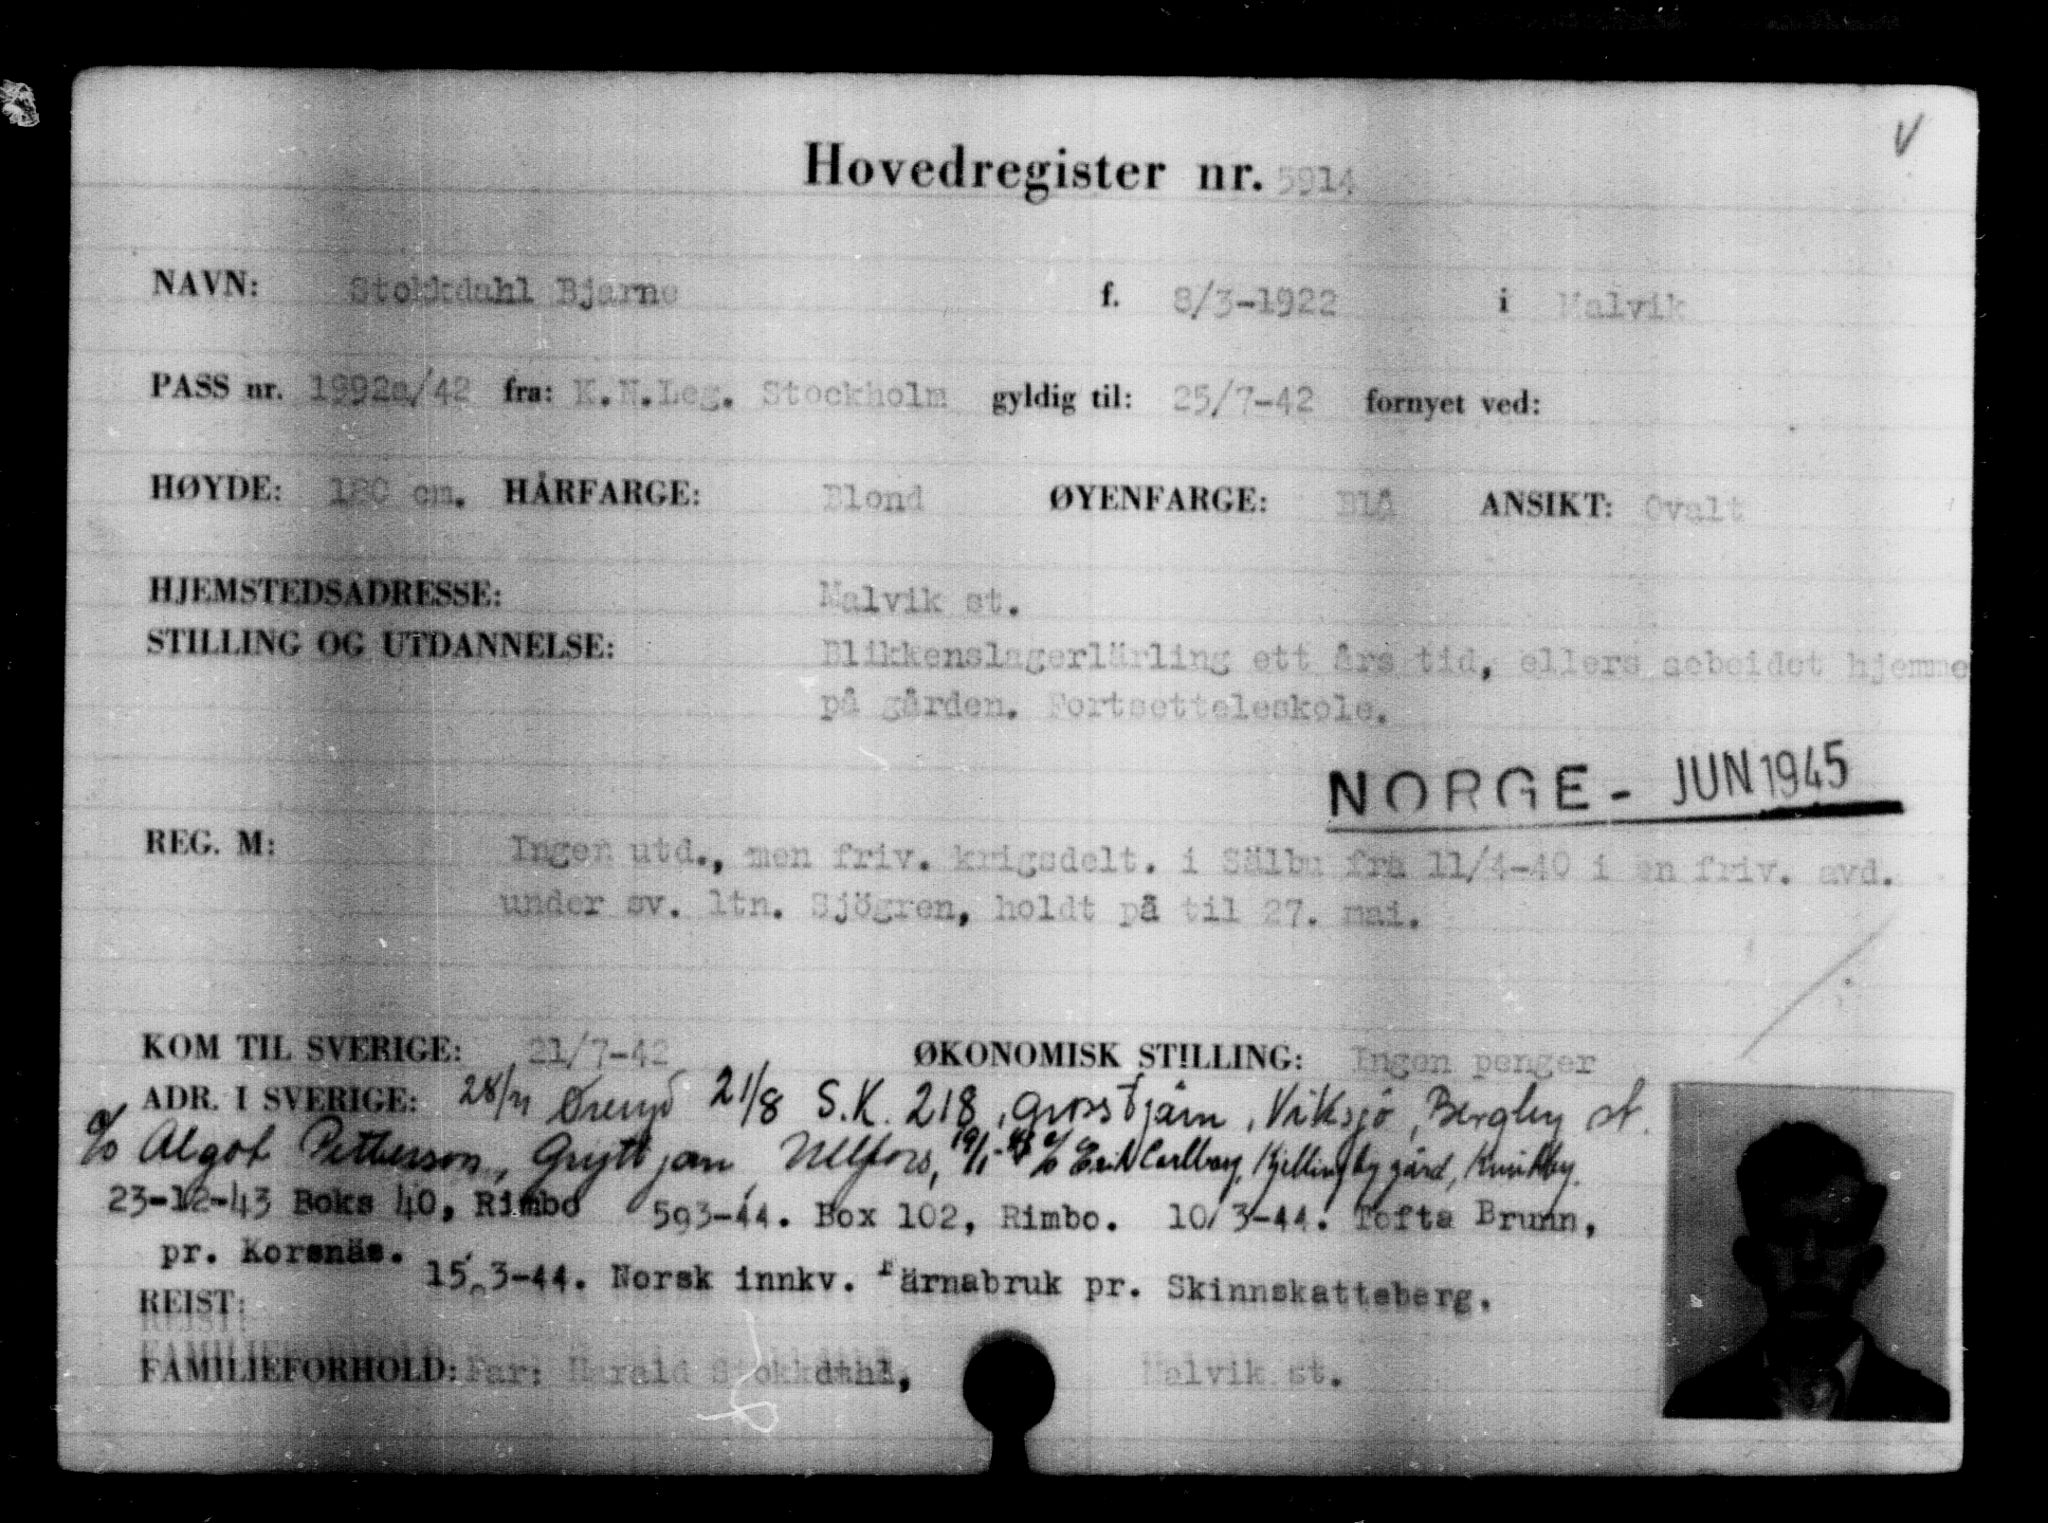 V
Hovedregister nr. 5914
NAVN: Stokkdahl Bjarne f. 8/3-1922 i Malvik
PASS nr. 1992a/42 fra: K.N.Leg. Stockholm gyldig til: 25/7-42 fornyet ved:
HØYDE: 180 cm. HÅRFARGE: Blond ØYENFARGE: Blå ANSIKT: Ovalt
HJEMSTEDSADRESSE: Malvik st.
STILLING OG UTDANNELSE: Blikkenslagerlärling ett års tid, ellers aebeidet hjemme
på gården. Fortsetteleskole.
NORGE - JUN 1945
REG. M: Ingen utd., men friv. krigsdelt. i Sälbu fra 11/4-40 i en friv. avd.
under sv. ltn. Sjögren, holdt på til 27. mai.
KOM TIL SVERIGE: 21/7-42 ØKONOMISK STILLING: Ingen penger
ADR. I SVERIGE: 21/8 S.K. 218, Grosstjärn, Viksjö, Bergby st.
c/o Algot Petterson, Gryttjan, Ulfors, 19/1- c/o Erik Carlborg, Kjellingby gård, Knutby.
23-12-43 Boks 40, Rimbo 593-44. Box 102, Rimbo. 10/3-44. Tofta Brunn,
pr. Korsnäs.
15.3-44. Norsk innkv. Färnabruk pr. Skinnskatteberg.
REIST:
FAMILIEFORHOLD: Far: Harald Stokkdahl, Malvik st.